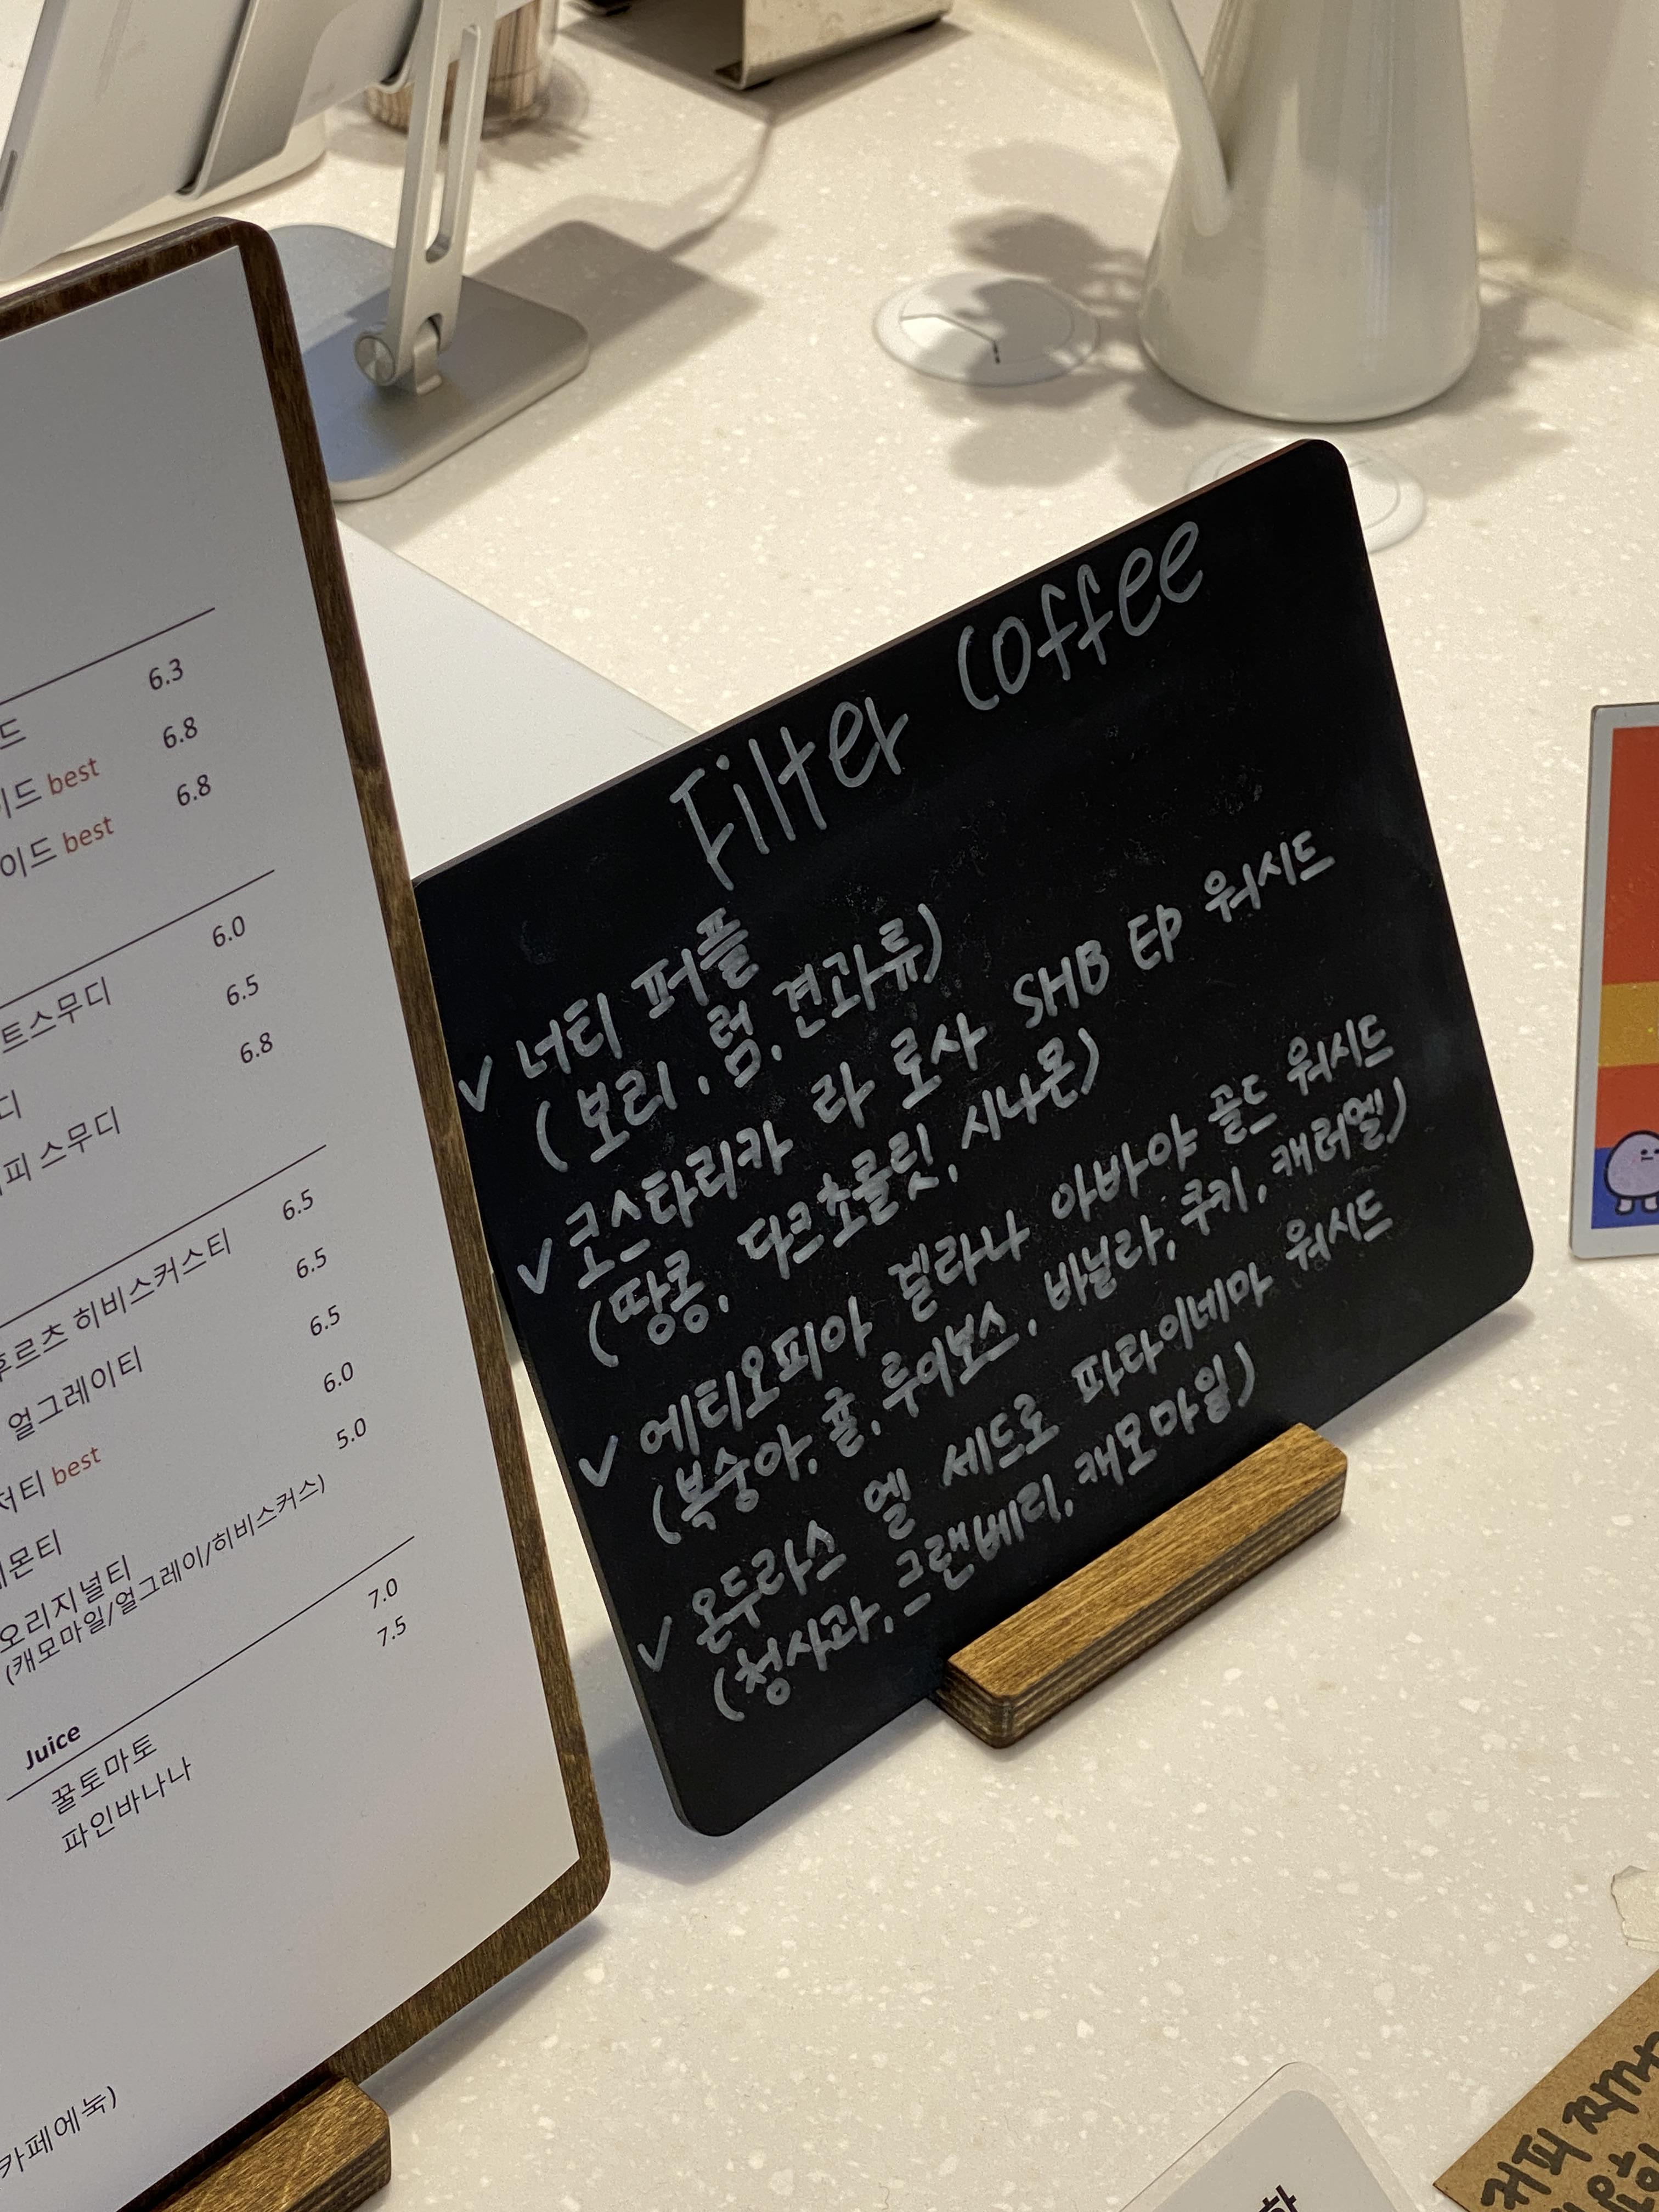 6.3
드
6.8
이드 best
6.8
이드 best
6.0
트스무디
6.5
디
6.8
피 스무디
6.5
후르츠 히비스커스티
6.5
얼그레이티
6.5
저티 best
6.0
몬티
5.0
오리지널티
(캐모마일/얼그레이/히비스커스)
Juice
7.0
꿀토마토
7.5
파인바나나
카페에눅)
Filter Coffee
✓ 너티 퍼플
(보리, 럼, 견과류)
✓ 코스타리카 라 로사 SHB EP 워시드
(땅콩, 다크초콜릿, 시나몬)
✓ 에티오피아 겔라나 아바야 골드 워시드
(복숭아, 귤, 루이보스, 바닐라, 쿠키, 캐러멜)
✓ 온두라스 엘 세드로 파라이네마 워시드
(청사과, 그랜베리, 캐모마일)
커피